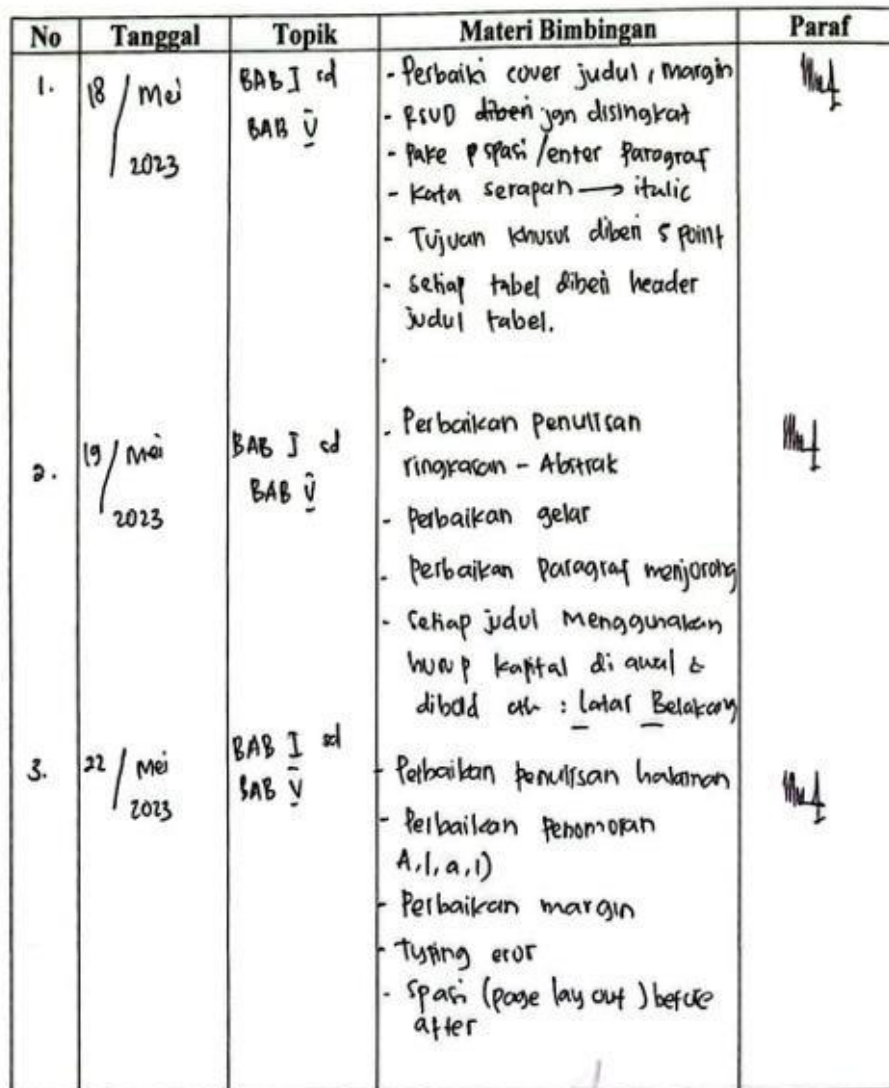 No Tanggal Topik Materi Bimbingan Paraf
1. 18 / Mei 2023
BAB I sd
BAB V
- Perbaiki cover judul, Margin
- RSUD diberi jgn disingkat
- Pake p spasi /enter Paragraf
- Kata serapan → italic
- Tujuan khusus diberi 5 Point
- setiap tabel diberi header
judul tabel.
2. 19 / Mei 2023
BAB I sd
BAB V
- Perbaikan penulisan
ringkasan - Abstrak
- Perbaikan gelar
- Perbaikan Paragraf menjorong
- Setiap judul Menggunakan
hurup kapital di awal &
dibold cth : Latar Belakang
3. 22 / Mei 2023
BAB I sd
BAB V
- Perbaikan penulisan halaman
- Perbaikan Penomoran
A, 1, a, 1)
- Perbaikan margin
- Typing eror
- Spasi (page lay out) before
after